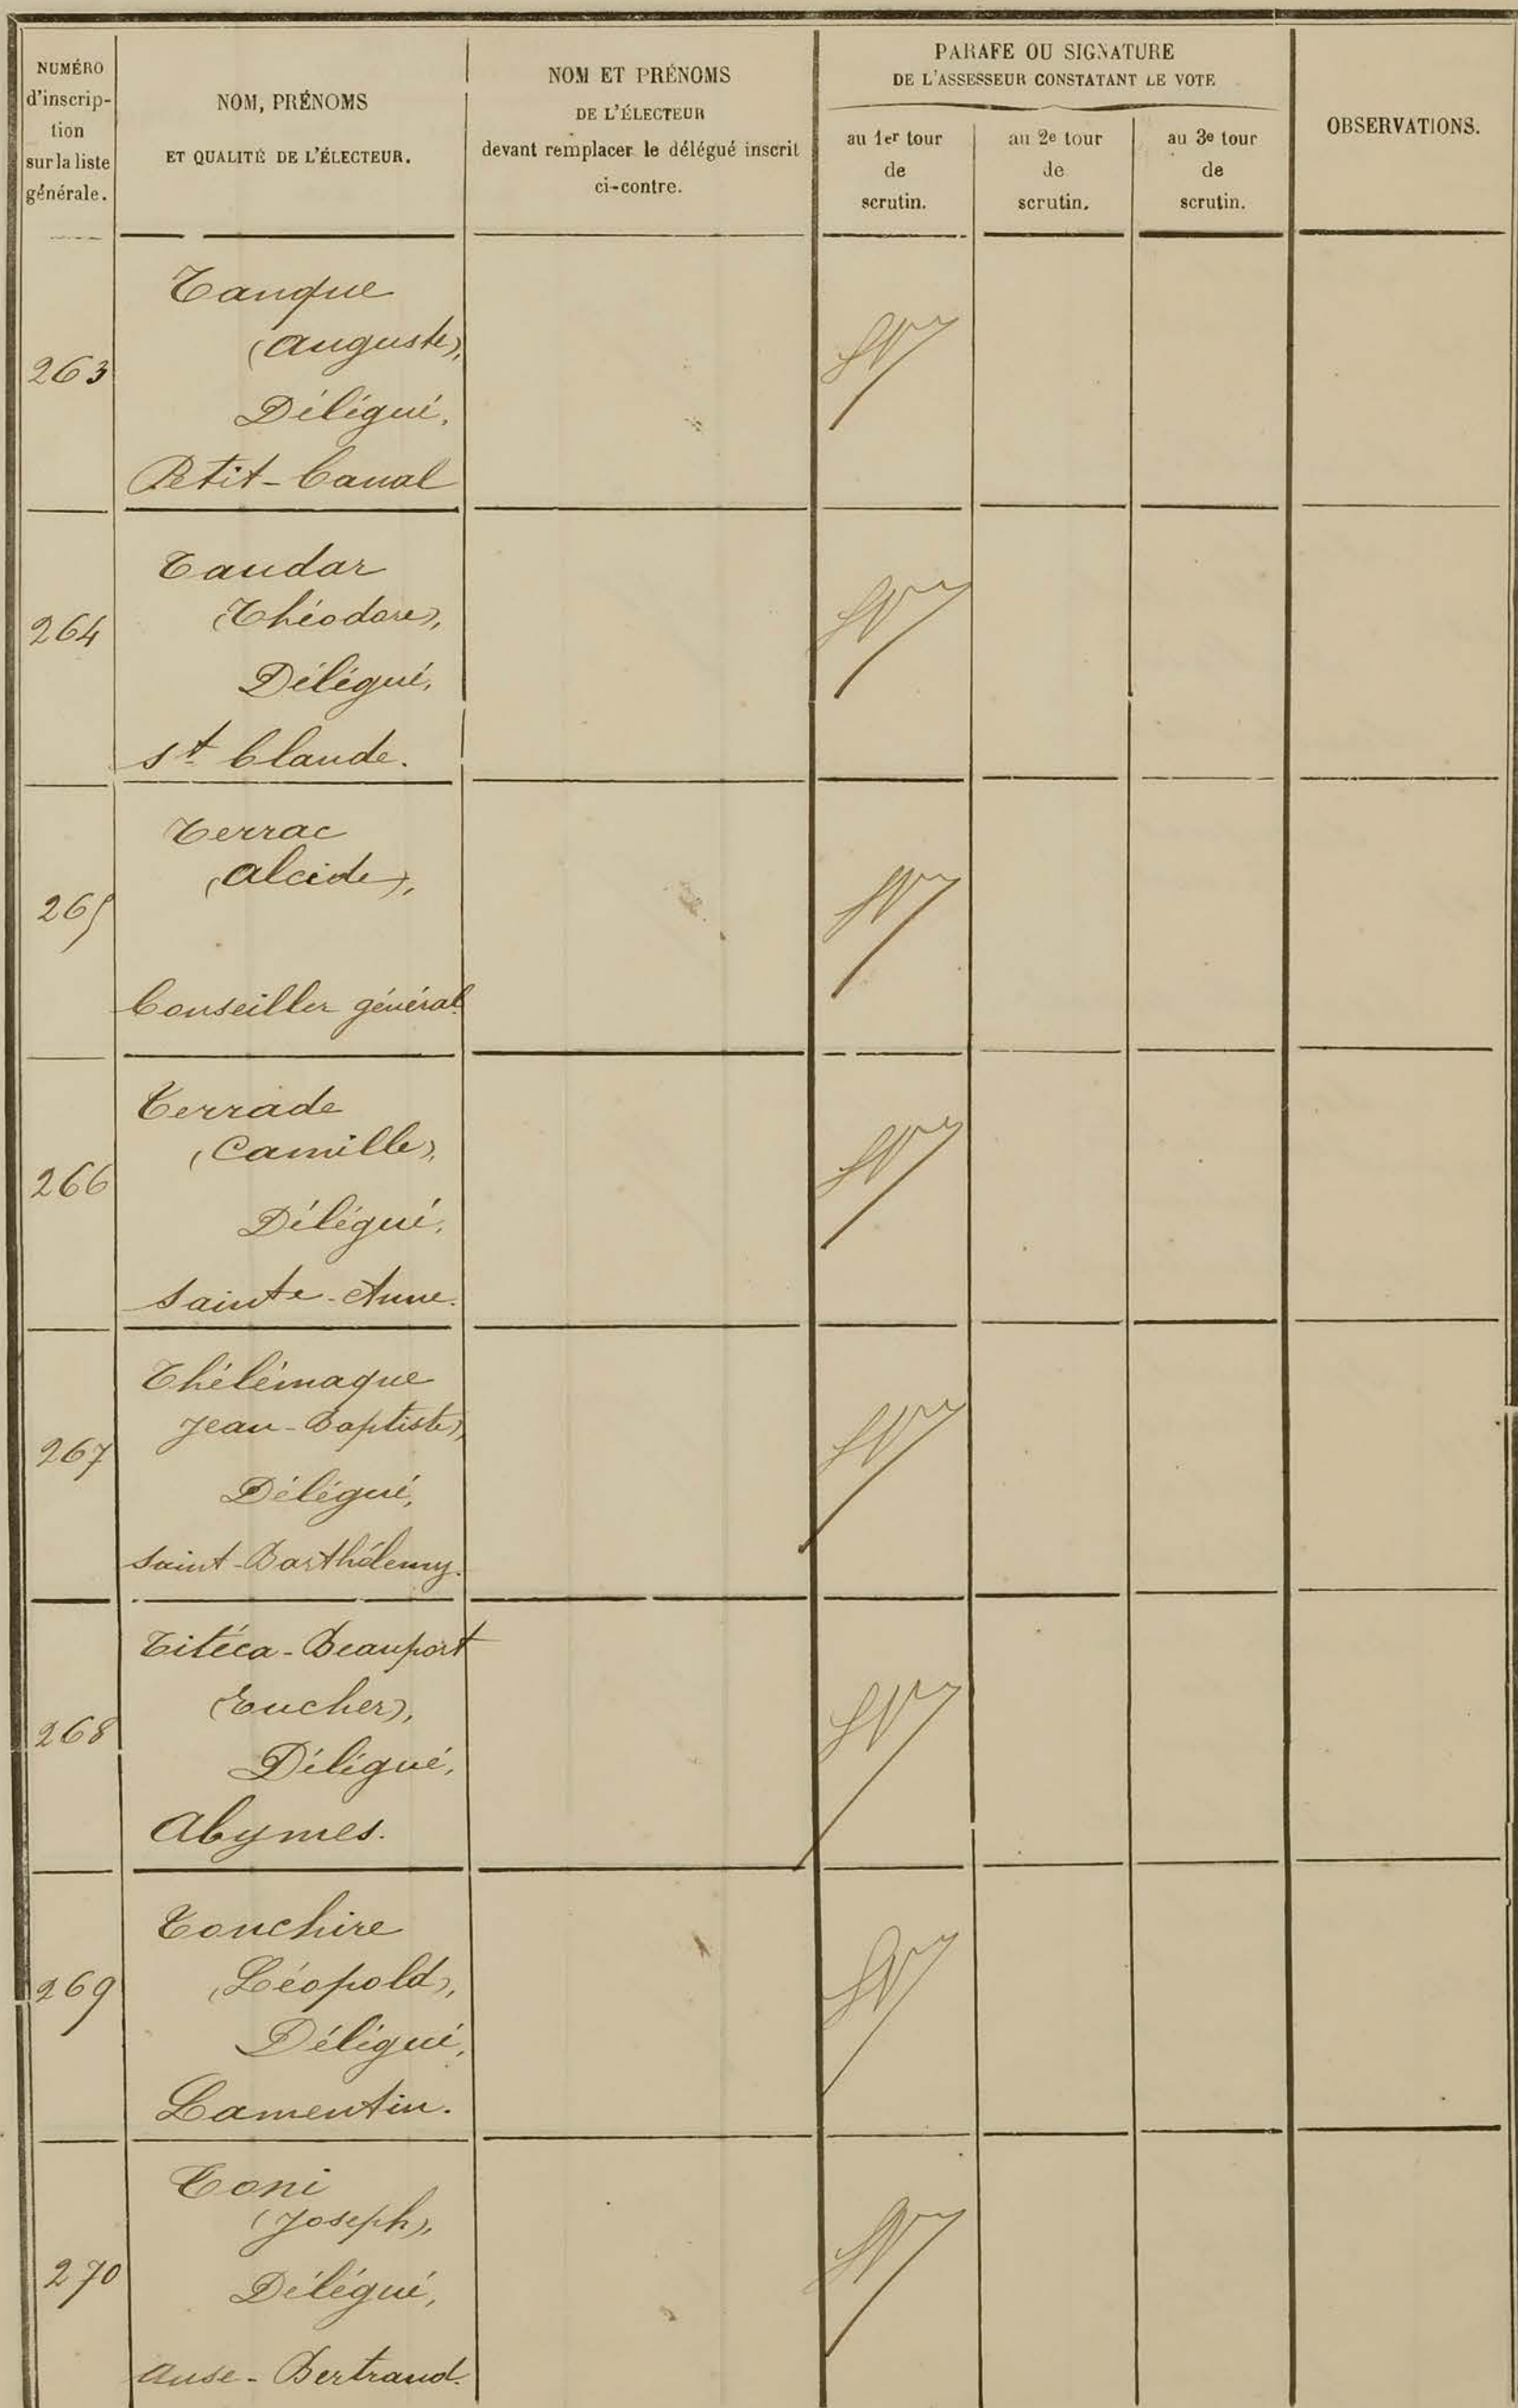 NUMÉRO
d'inscrip-
tion
sur la liste
générale.
NOM, PRÉNOMS
ET QUALITÉ DE L'ÉLECTEUR.
NOM ET PRÉNOMS
DE L'ÉLECTEUR
devant remplacer le délégué inscrit
ci-contre.
PARAFE OU SIGNATURE
DE L'ASSESSEUR CONSTATANT LE VOTE
au 1er tour
de
scrutin.
au 2e tour
de
scrutin.
au 3e tour
de
scrutin.
OBSERVATIONS.
263
Tanque
(Auguste),
Délégué,
Petit-Canal
264
Taudar
(Théodore),
Délégué,
St Claude.
265
Terrac
(Alcide),
Conseiller général.
266
Terrade
(Camille),
Délégué,
Sainte-Anne.
267
Thélémaque
Jean-Baptiste),
Délégué,
Saint-Barthélemy.
268
Titéca-Beauport
(Eucher),
Délégué,
Abymes.
269
Touchire
(Léopold),
Délégué,
Lamentin.
270
Toni
(Joseph),
Délégué,
Anse-Bertrand.